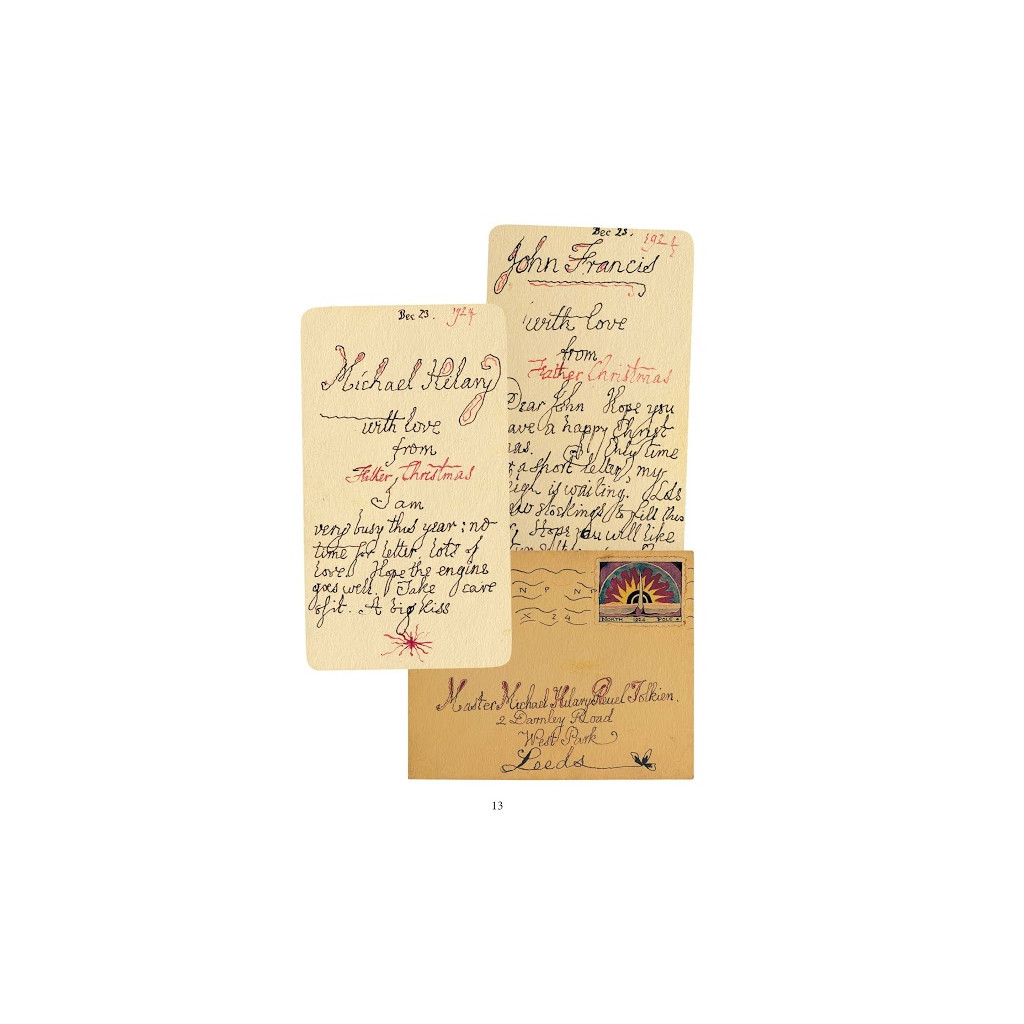 Dec 23. 1924
Michael Hilary
with love
from
Father Christmas
I am
very busy this year : no
time for letter. Lots of
love. Hope the engine
goes well. Take care
of it. A big kiss
Dec 23. 1924
John Francis
with love
from
Father Christmas
Dear John Hope you
ave a happy Christ
mas. Only time
r a short letter, my
eigh is waiting. Lots
ew stockings to fill this
Hope you will like
N P N P
X 24
NORTH 1924 POLE
Master Michael Hilary Reuel Tolkien.
2 Darnley Road
West Park
Leeds
13